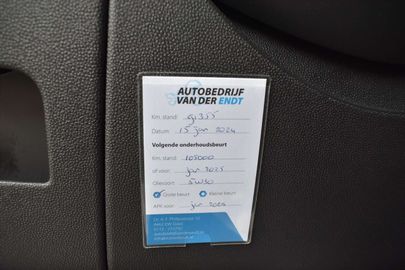 AUTOBEDRIJF
VAN DER ENDT
Km. stand: 91355
Datum: 15 jan 2024
Volgende onderhoudsbeurt
Km. stand: 105000
of voor: jan 2025
Oliesoort: 5W30
Grote beurt Kleine beurt
APK voor: jan